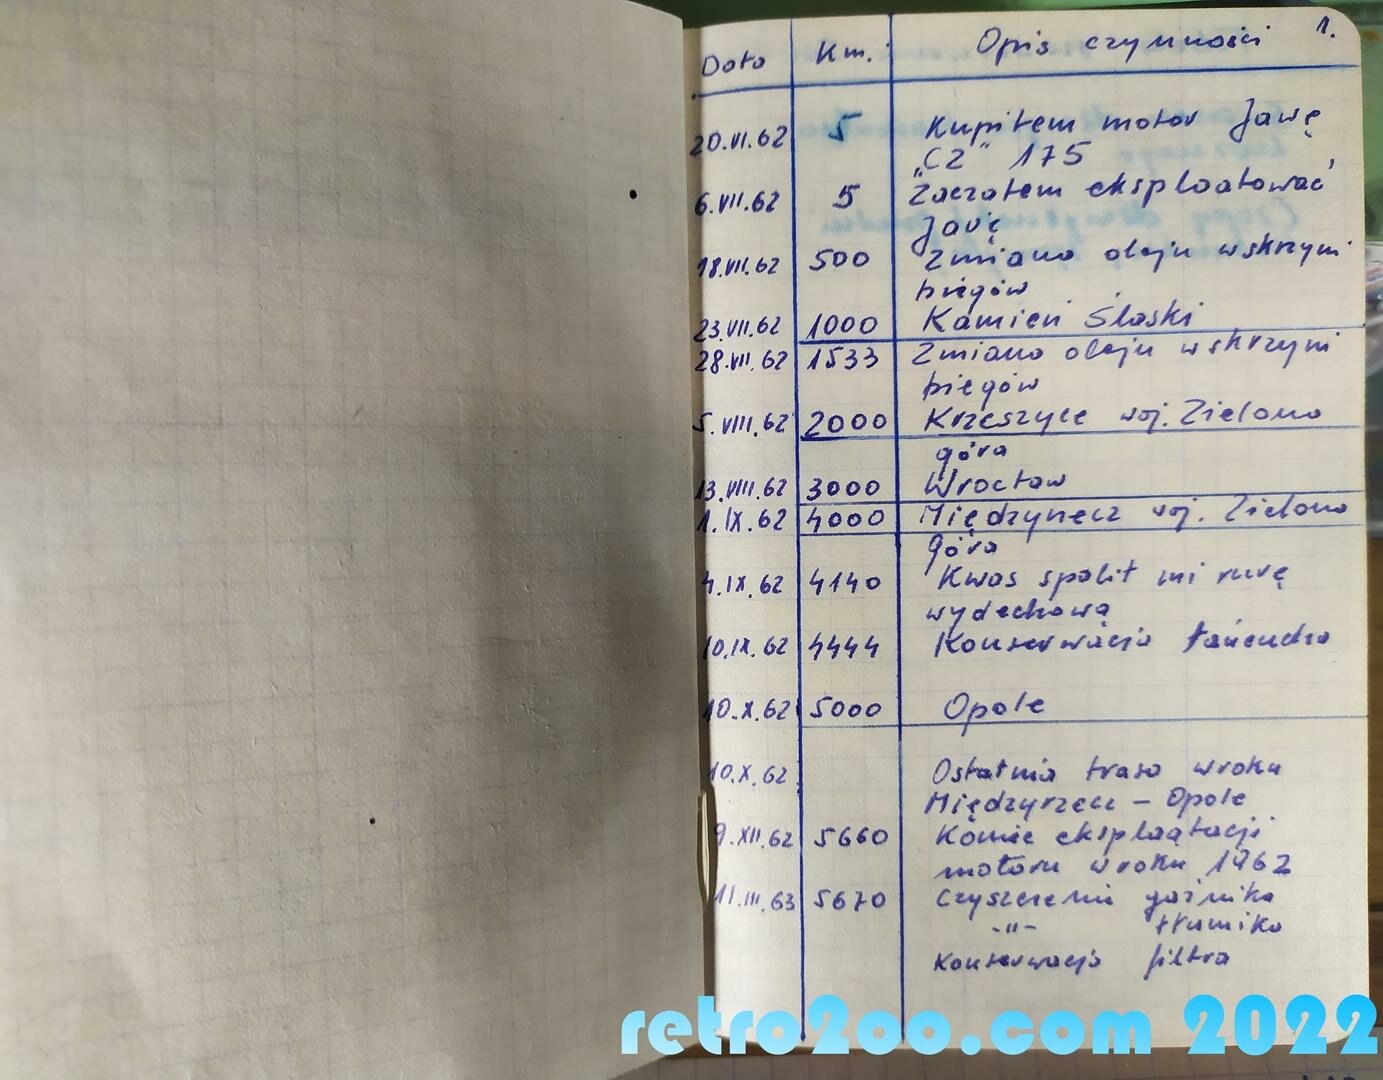 Data Km. Opis czynności 1.
20.VI.62 5 Kupiłem motor Jawę
„CZ" 175
6.VII.62 5 Zacząłem eksploatować
Jawę
18.VII.62 500 Zmiana oleju w skrzyni
biegów
23.VII.62 1000 Kamień Śląski
28.VII.62 1533 Zmiana oleju w skrzyni
biegów
5.VIII.62 2000 Krzeszyce woj. Zielona
góra
13.VIII.62 3000 Wrocław
1.IX.62 4000 Międzyrzecz woj. Zielona
góra
4.IX.62 4140 Kwas spalił mi rurę
wydechową
10.IX.62 4444 Konserwacja łańcucha
10.X.62 5000 Opole
10.X.62 Ostatnia trasa w roku
Międzyrzecz – Opole
9.XII.62 5660 Koniec eksploatacji
motoru w roku 1962
11.III.63 5670 Czyszczenie gaźnika
-"- tłumika
Konserwacja filtra
retro2oo.com 2022